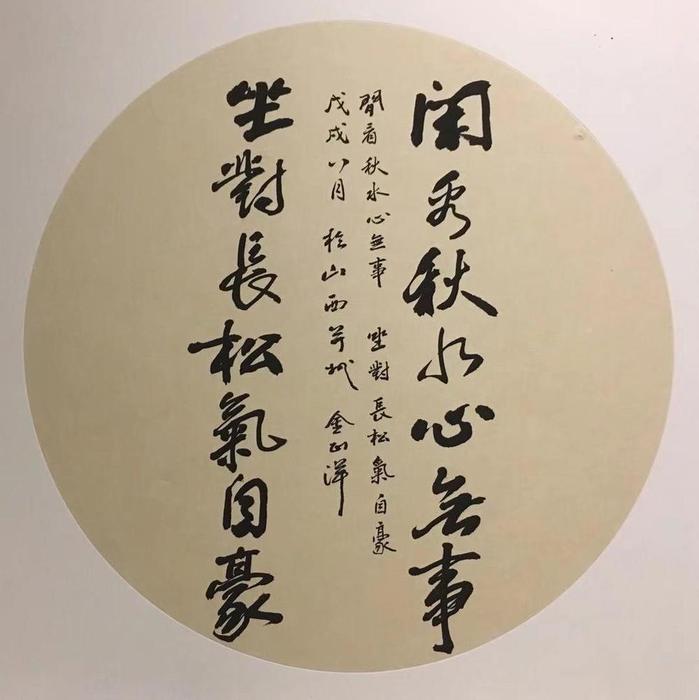 閑看秋水心無事
坐對長松氣自豪
閒看秋水心無事 坐對長松氣自豪
戊戌八月於山西芮城 金正洋